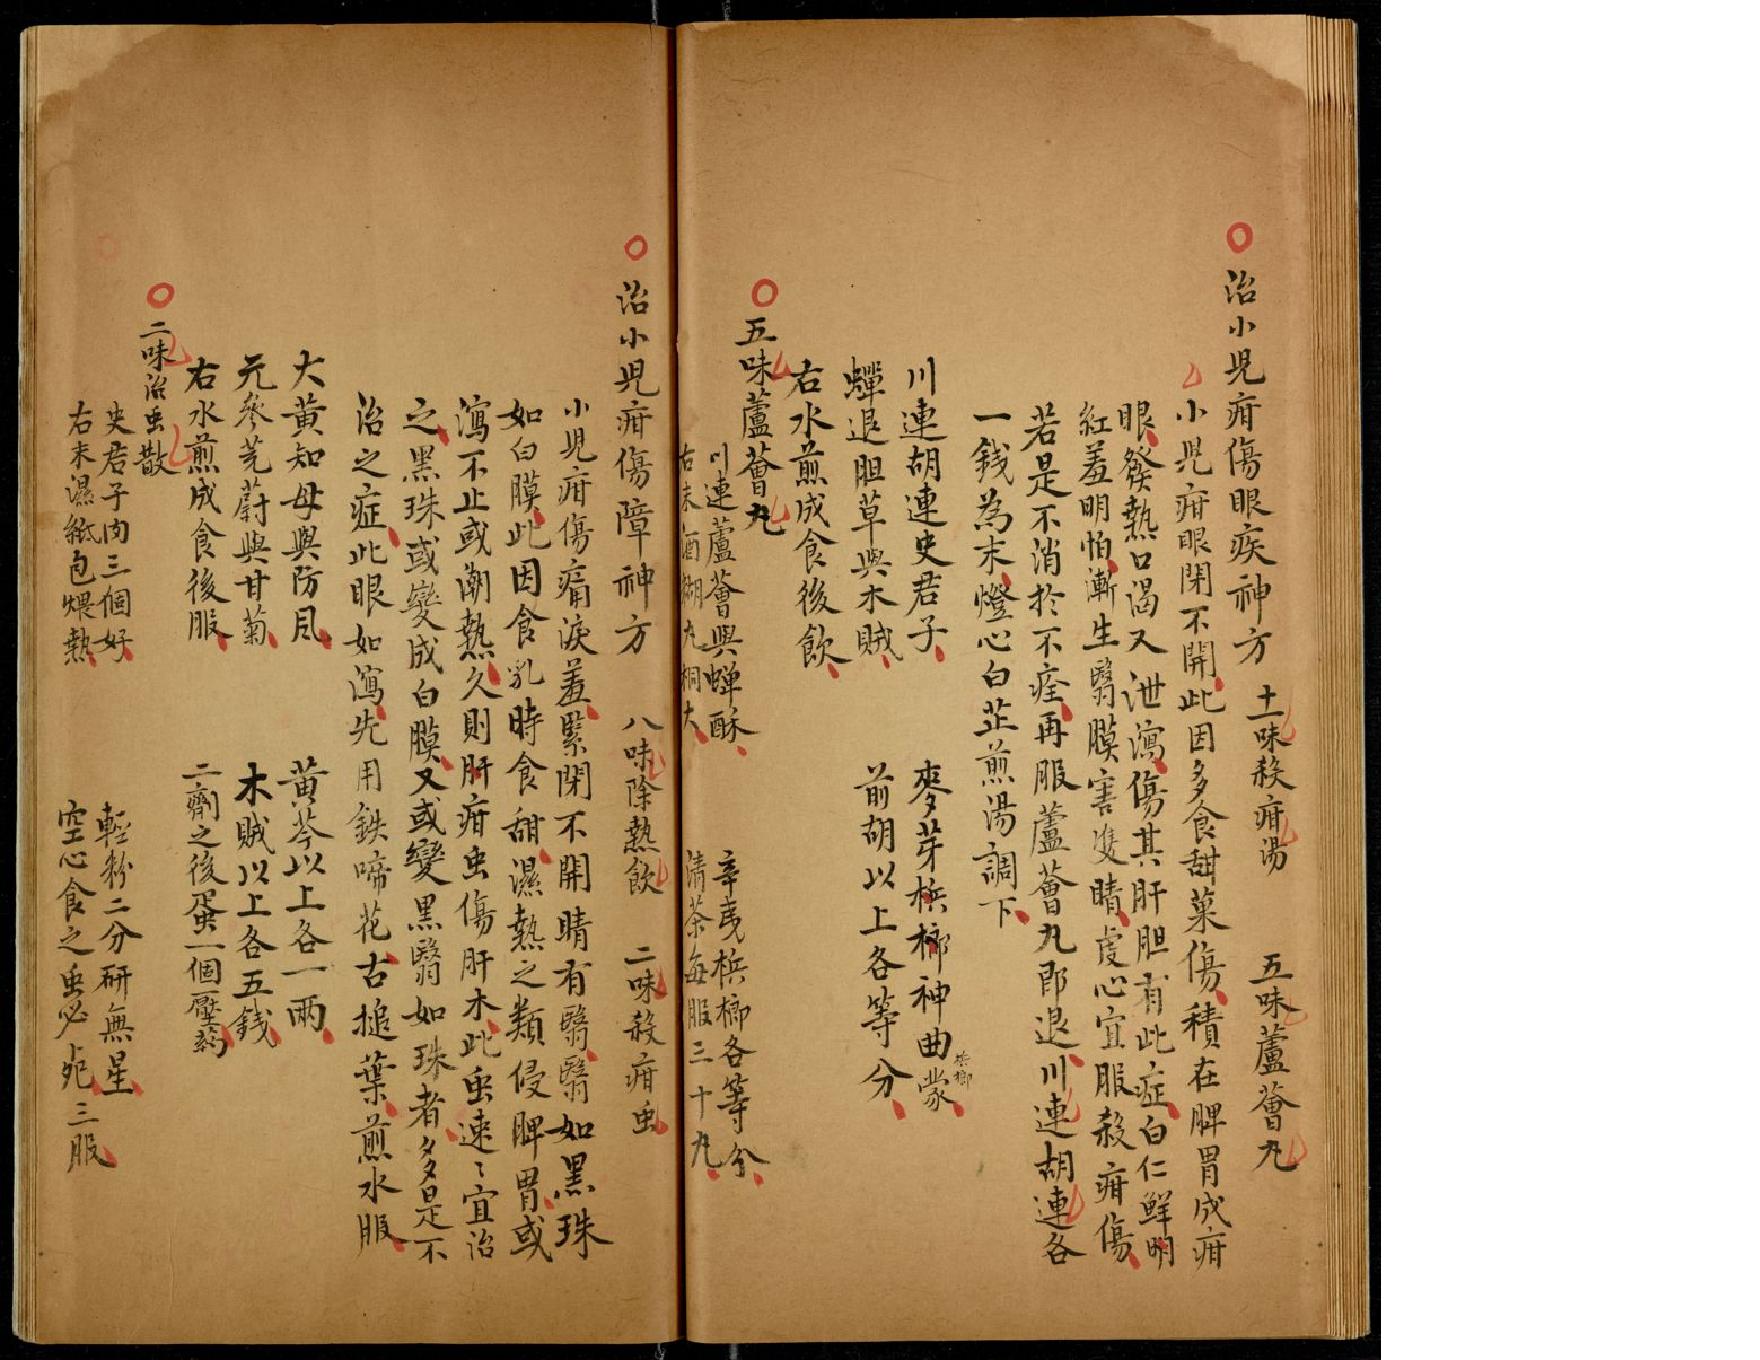 治小児疳傷眼疾神方 十一味殺疳湯 五味蘆薈丸
小児疳眼閉不開此因多食甜菓傷積在脾胃成疳
眼發熱口渴又泄瀉傷其肝胆有此症白仁鮮明
紅羞明怕漸生翳膜害雙睛虔心宜服殺疳傷
若是不消於不痊再服蘆薈丸即退川連胡連各
一錢為末燈心白芷煎湯調下
川連胡連史君子 麥芽梹榔神曲蒙
梹榔
蟬退胆草與木賊 前胡以上各等分
右水煎成食後飲
五味蘆薈丸
川連蘆薈與蟬酥 辛夷梹榔各等分
右末酒糊丸桐大 清茶每服三十丸
治小児疳傷障神方 八味除熱飲 二味殺疳虫
小児疳傷痛淚羞緊閉不開睛有翳翳如黑珠
如白膜此因食乳時食甜濕熱之類侵脾胃或
瀉不止或潮熱久則肝疳虫傷肝木此虫速〻宜治
之黑珠或變成白膜又或變黑翳如珠者多是不
治之症此眼如瀉先用鉄啼花古搥葉煎水服
大黃知母與防風 黃芩以上各一兩
元參茺蔚與甘菊 木賊以上各五錢
右水煎成食後服 二劑之後蛋一個壓药
二味治虫散
史君子肉三個好 輕粉二分研無星
右末濕紙包煨熱 空心食之虫必死三服